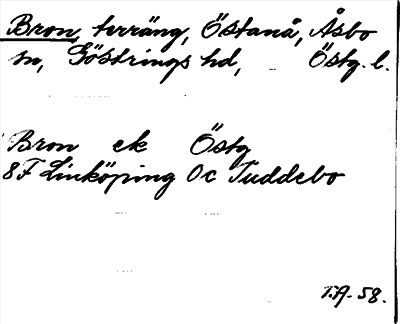 Bron, terräng, Östanå, Åsbo
sn, Göstrings hd, Östg. l.
Bron ek Östg
8F Linköping 0c Tuddebo
T.A. 58.